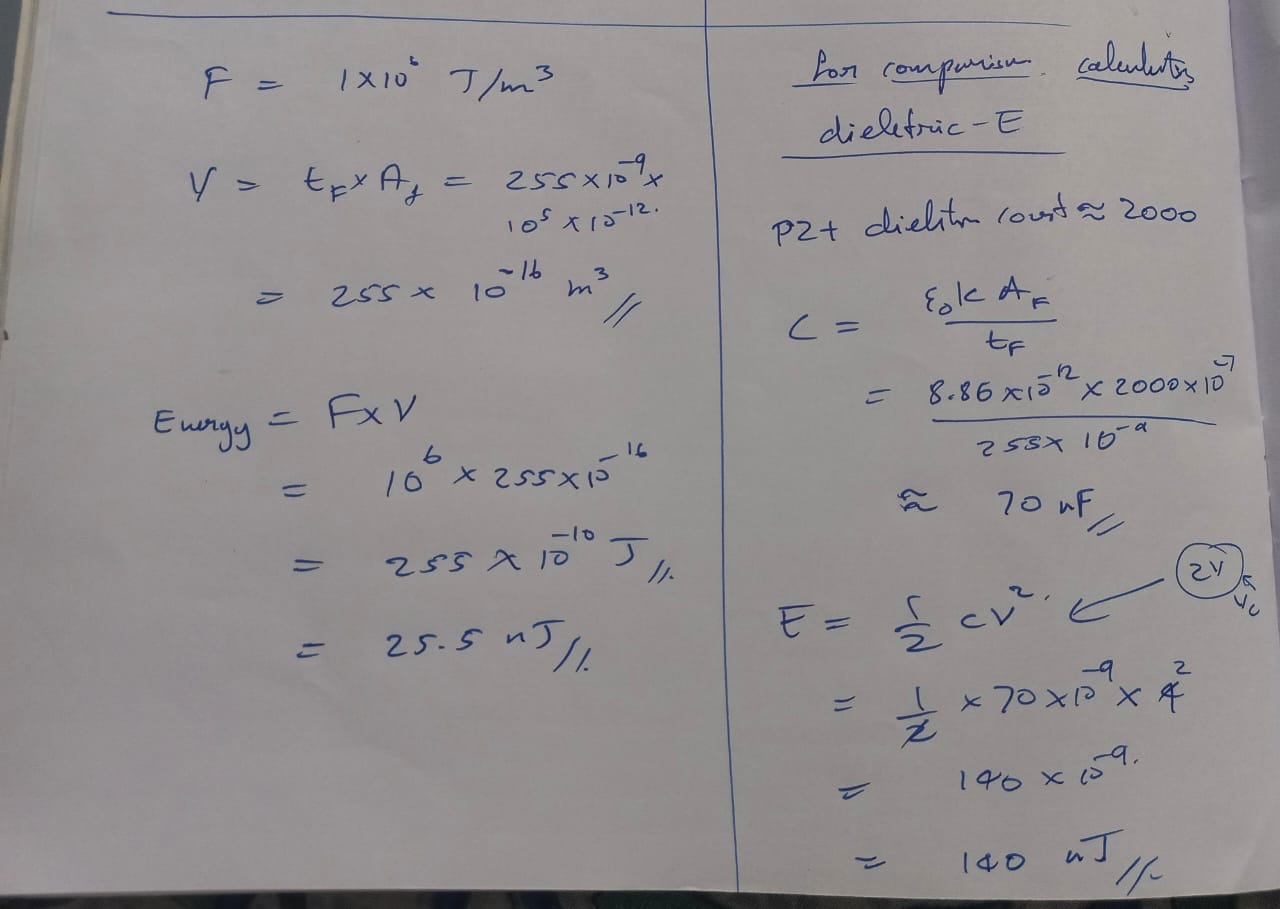 F = 1×10⁶ J/m³
V = t_F × A_f = 255×10⁻⁹ ×
10⁵ × 10⁻¹².
= 255 × 10⁻¹⁶ m³ //
Energy = F×V
= 10⁶ × 255×10⁻¹⁶
= 255 × 10⁻¹⁰ J //.
= 25.5 nJ //.
for comparison calculating
dieletric - E
PZt const ≈ 2000
C = ε₀ k A_F / t_F
= 8.86 ×10⁻¹² × 2000×10⁻⁷ / 255× 10⁻⁹
≈ 70 nF //
E = 1/2 cv². ← 2V
= 1/2 × 70×10⁻⁹ × 4 2
= 140 × 10⁻⁹.
= 140 nJ //